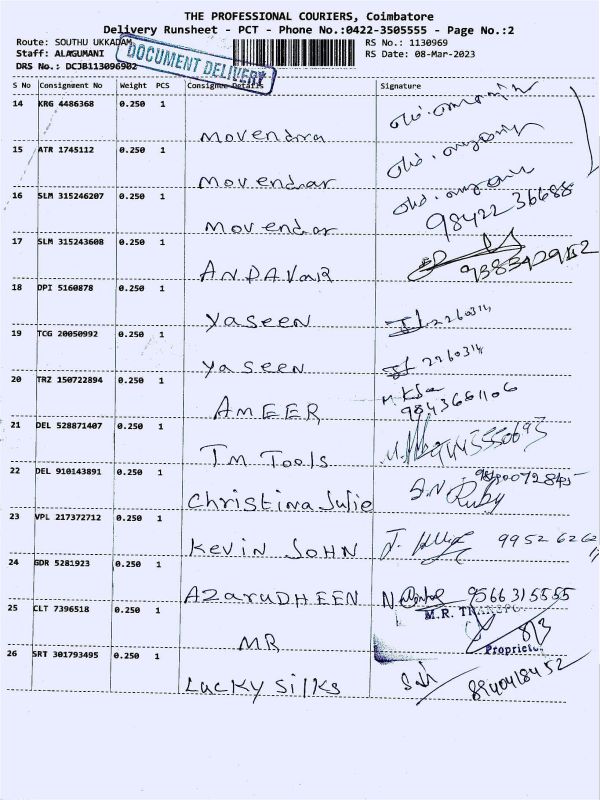 THE PROFESSIONAL COURIERS, Coimbatore
Delivery Runsheet - PCT - Phone No.:0422-3505555 - Page No.:2
Route: SOUTHU UKKADAM
RS No.: 1130969
Staff: ALAGUMANI
RS Date: 08-Mar-2023
DRS No.: DCJB113096902
DOCUMENT DELIVERY
S No Consignment No Weight PCS Consignee Details Signature
14 KRG 4486368 0.250 1
Movendra
15 ATR 1745112 0.250 1
Movendar
16 SLM 315246207 0.250 1
Movendar 98422 36688
17 SLM 315243608 0.250 1
ANDAVAR
18 DPI 5160878 0.250 1
Yaseen 2260314
19 TCG 20050992 0.250 1
Yaseen 2260314
20 TRZ 150722894 0.250 1
AMEER
21 DEL 528871407 0.250 1
TM Tools
22 DEL 910143891 0.250 1
Christina Julie Ruby
23 VPL 217372712 0.250 1
Kevin JOHN 9952 6262
24 GDR 5281923 0.250 1
AZaruDHEEN 9566315555
25 CLT 7396518 0.250 1
M.R.
MR
26 SRT 301793495 0.250 1
Lucky Silks 8940418452